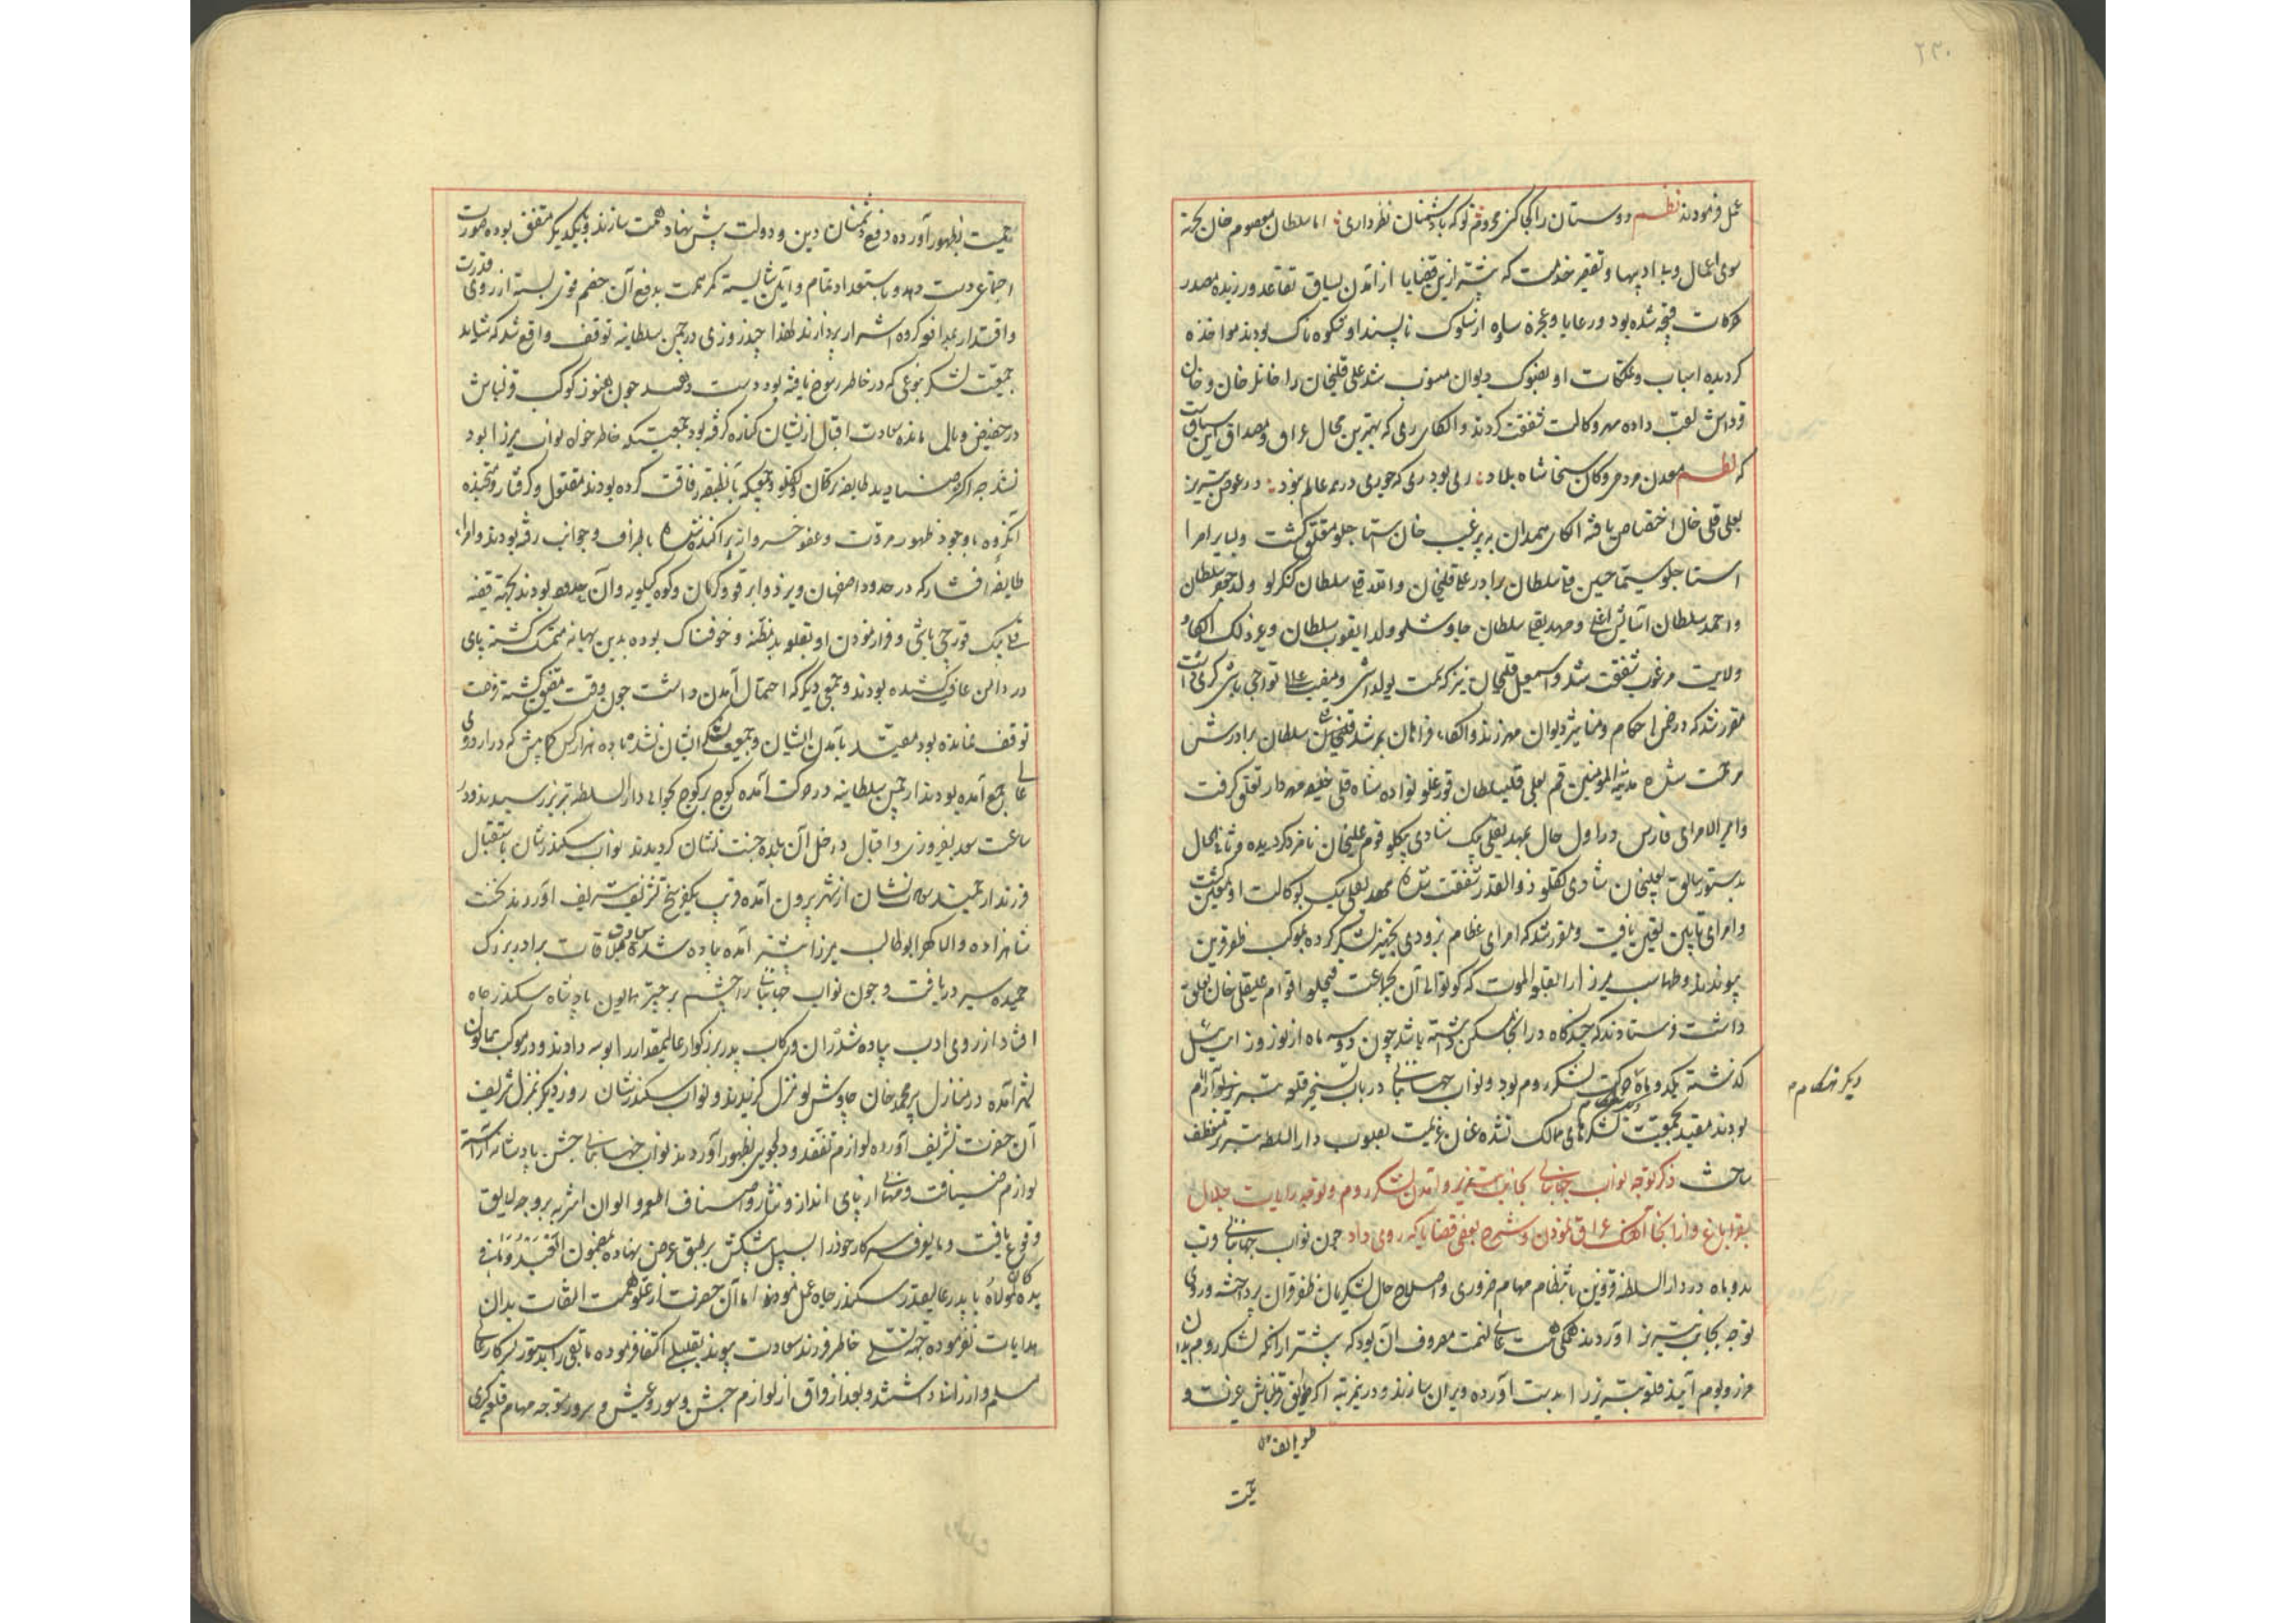 ۲۳۰
عمل فرمودند نظم دوستان را کجا کنی محروم تو که با دشمنان نظر داری اما سلطان معصوم خان بجهة
سوی اعمال و بی‌ادبیها و تقصیر خدمت که پیشتر ازین قضایا از آمدن یساق تقاعد ورزیده مصدر
حرکات قبیحه شده بود و رعایا و عجزه ساوه از سلوک ناپسند او شکوه ناک بودند مواخذه
کردیده اسباب و تملکات او بضبوک دیوان منسوب شد علی قلیخان را خانلر خان و خان
قرداش لقب داده مهر وکالت شفقت کردند و الکای ری که بهترین محال عراق و مصداق این سیاق
که نظم معدن مردمی و کان سخا شاه بلاد ری بود ری که چو ری در همه عالم نبود در عوض تبریز
بعلی قلی خان اختصاص یافته الکای همدان به پیرغیب خان استاجلو متعلق گشت و بسایر امرا
استاجلو سیما حسین قلی سلطان برادر علی قلیخان و الله قلی سلطان کنکرلو ولد جعفر سلطان
و احمد سلطان آسایش اغلی و مهدیقلی سلطان چاوشلو ولد ایقوب سلطان و غیر ذلک الکاء و
ولایت مرغوب شفقت شد و اسمعیل قلیخان نیز که بمت یولداشی و منصب تواجی باشی کری داشت
مقرر شد که در ضمن احکام و مناشیر دیوان مهر زند و الکاء فراهان بمرشد قلی سلطان برادرش
مرحمت شده مدینة المومنین قم بعلی قلیسلطان قورغلو نواده شاه قلی خلیفه مهردار تعلق گرفت
و امیر الامرای فارس در اول حال بمهدیقلی بیک شادی بکلو قوم علیخان نامزد کردیده در ثانی الحال
بدستور سابق بعلیخان شادی تکلو ذوالقدر شفقت شده مهدیقلی بیک بوکالت او معین گشت
و امرای تابین تعین یافت و مقرر شد که امرای عظام بزودی تجهیز لشکر کرده بموکب ظفر قرین
پیوندند و طهماسب میرزا را بقلعه الموت که کوتوالی آن بجماعت قبچلو اقوام علیقلی خان تعلق
داشت فرستادند که چندگاه در آنجا مسکن داشته باشد چون دو سه ماه از نوروز ایت ئیل
گذشته یکدو ماه حرکت لشکر روم بود و نواب جهانبانی در باب تسخیر قلعه تبریز بی آرام
بودند مقید بجمعیت لشکرهای ممالک نشده عنان عزیمت بصوب دار السلطنه تبریز منعطف
ساخت ذکر توجه نواب جهانبانی بجانب تبریز و آمدن لشکر روم و توجه رایات جلال
بقراباغ و از آنجا آهنک عراق نمودن و شرح بعضی قضایا که روی داد چون نواب جهانبانی قرب
بدو ماه در دار السلطنه قزوین بانتظام مهام ضروری و اصلاح حال لشکریان ظفر قران پرداخته روی
توجه بجانب تبریز آوردند همگی همت عالی نهمت مصروف آن بود که پیشتر از آنکه لشکر روم بدان
مرز و بوم آیند قلعه تبریز را بدست آورده ویران سازند و درین مرتبه اگر طوایف قزلباش غیرت و
دیگر هنگام
طوایف
حمیت بظهور آورده دفع دشمنان دین و دولت پیش نهاد همت سازند و بیکدیگر متفق بوده صورت
اجتماع دست دهد و باستعداد تمام و آیین شایسته کمر همت بدفع آن خصم قوی بسته از روی قدرت
و اقتدار بمدافعه گروه اشرار پردازند لهذا چند روزی در چمن سلطانیه توقف واقع شد که شاید
جمعیت لشکر بنوعی که در خاطر رسوخ یافته بود دست دهد چون هنوز کوکب قزلباش
در حضیض وبال مانده سعادت اقبال ازیشان کناره گرفته بود جمعیتی که خاطرخواه نواب میرزا بود
نشد چه اکثر صنادید طایفه ترکمان و تکلو و جمعی که با آنطبقه رفاقت کرده بودند مقتول و گرفتار و بقیه
آنگروه با وجود ظهور مروت و عفو خسروانه پراکنده شده باطراف و جوانب رفته بودند و امراء
طایفه افشار که در حدود اصفهان و یزد و ابرقو و کرمان و کوه کیلویه و آن حدود بودند بجهة قضیه
قلی بیک قورچی باشی و فرار نمودن او بقلعه بدمظنه و خوفناک بوده بدین بهانه متمسک گشته پای
در دامن عافیت کشیده بودند و جمعی دیگر که احتمال آمدن داشت چون وقت مضیق گشته فرصت
توقف نمانده بود مقید بآمدن ایشان و جمعیت لشکر ایشان نشده با ده هزار کس کمابیش که در اردوی
عالی جمع آمده بودند از چمن سلطانیه در حرکت آمده کوچ بر کوچ بحوالی دار السلطنه تبریز رسیدند و در
ساعت سعد بفیروزی و اقبال داخل آن بلده جنت نشان کردیدند نواب سکندرشان باستقبال
فرزند ارجمند سعادت نشان از شهر بیرون آمده قریب بیکفرسخ تشریف شریف آوردند نخست
شاهزاده والا گهر ابوطالب میرزا پیشتر آمده پیاده شده سعادت ملاقات برادر بزرگ
حمیده سیر دریافت و چون نواب جهانبانی را چشم بر چتر همایون پادشاه سکندر جاه
افتاد از روی ادب پیاده شده ران و رکاب پدر بزرگوار عالیمقدار را بوسه دادند و در موکب همایون
بشهر آمده در منازل پیر محمد خان چاوشلو نزول گزیدند و نواب سکندرشان روز دیگر بمنزل شریف
آن حضرت تشریف آورده لوازم تفقد و دلجویی بظهور آوردند نواب جهانبانی جشن پادشاهانه آراسته
لوازم ضیافت و مهمانی از پای انداز و نثار و اصناف اطعمه و الوان اشربه بر وجه لایق
وقوع یافت و مایعرف سرکار خود را بسبیل پیشکش بر طبق عرض نهاده بمضمون العبد و ما فی
یده کان لمولاه با پدر عالیقدر سکندر جاه عمل نمودند اما آن حضرت از علو همت التفات بدان
هدایات نفرموده بجهة تسلی خاطر فرزند سعادت پیوند بقلیلی اکتفا فرموده مابقی را بدستور بسرکار عالی
مسلم و ارزانی داشتند و بعد از فراق از لوازم جشن و سور و عیش و سرور متوجه مهام قلعه گیری